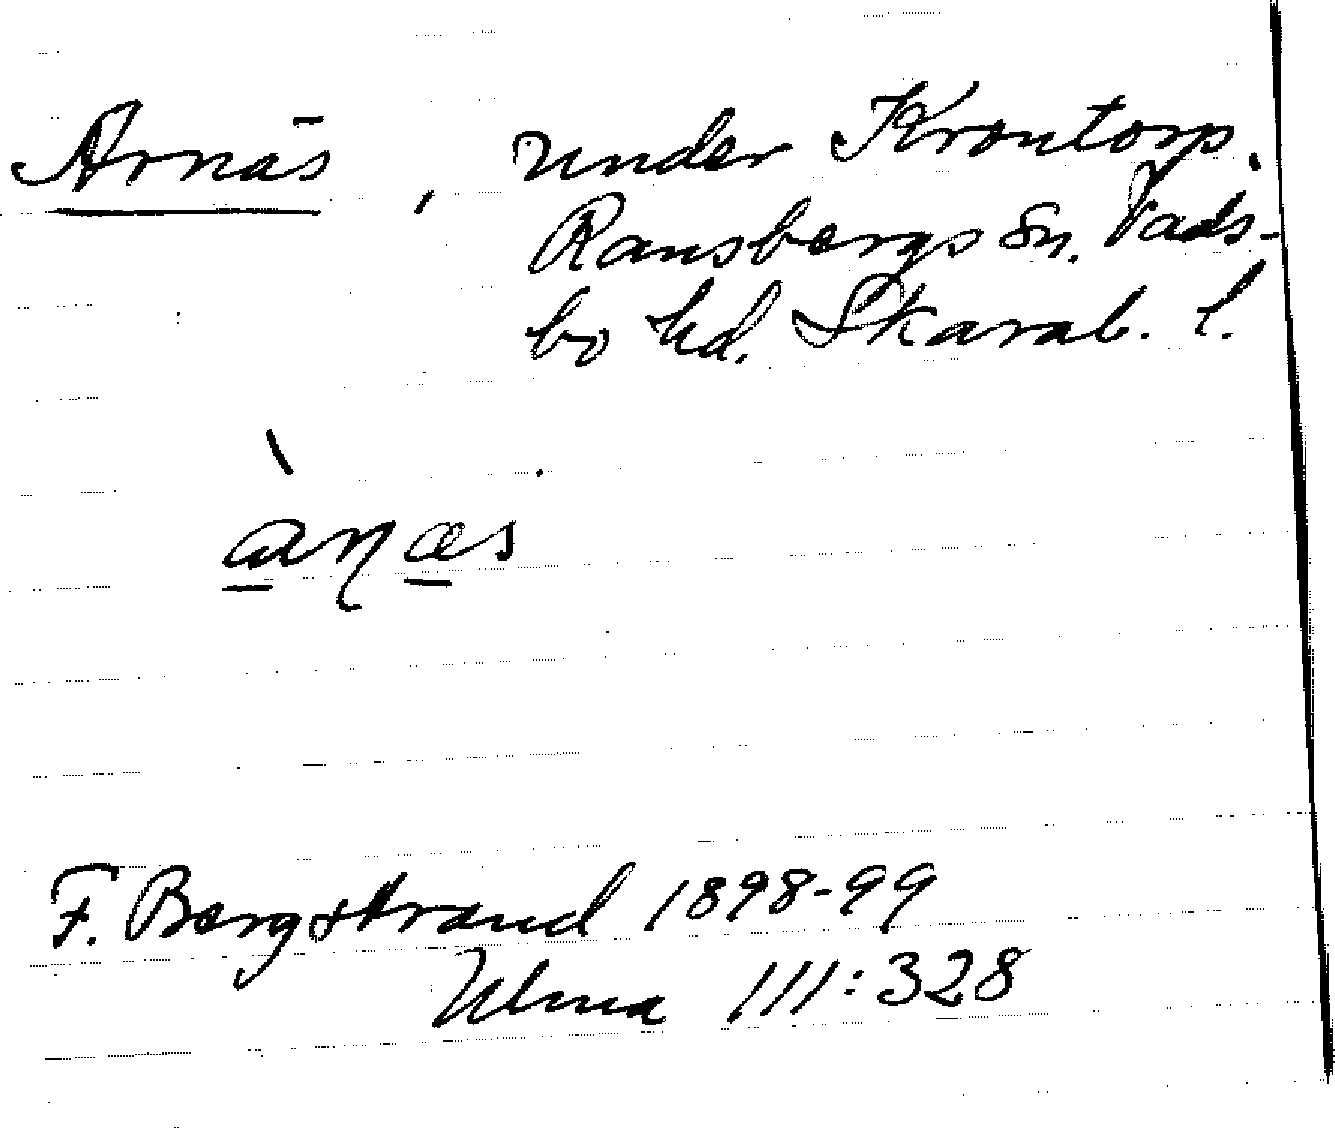 Arnäs, under Krontorp,
Ransbergs sn. Vads-
bo hd. Skarab. l.
àṇæs
F. Bergstrand 1898-99
Ulma 111:328